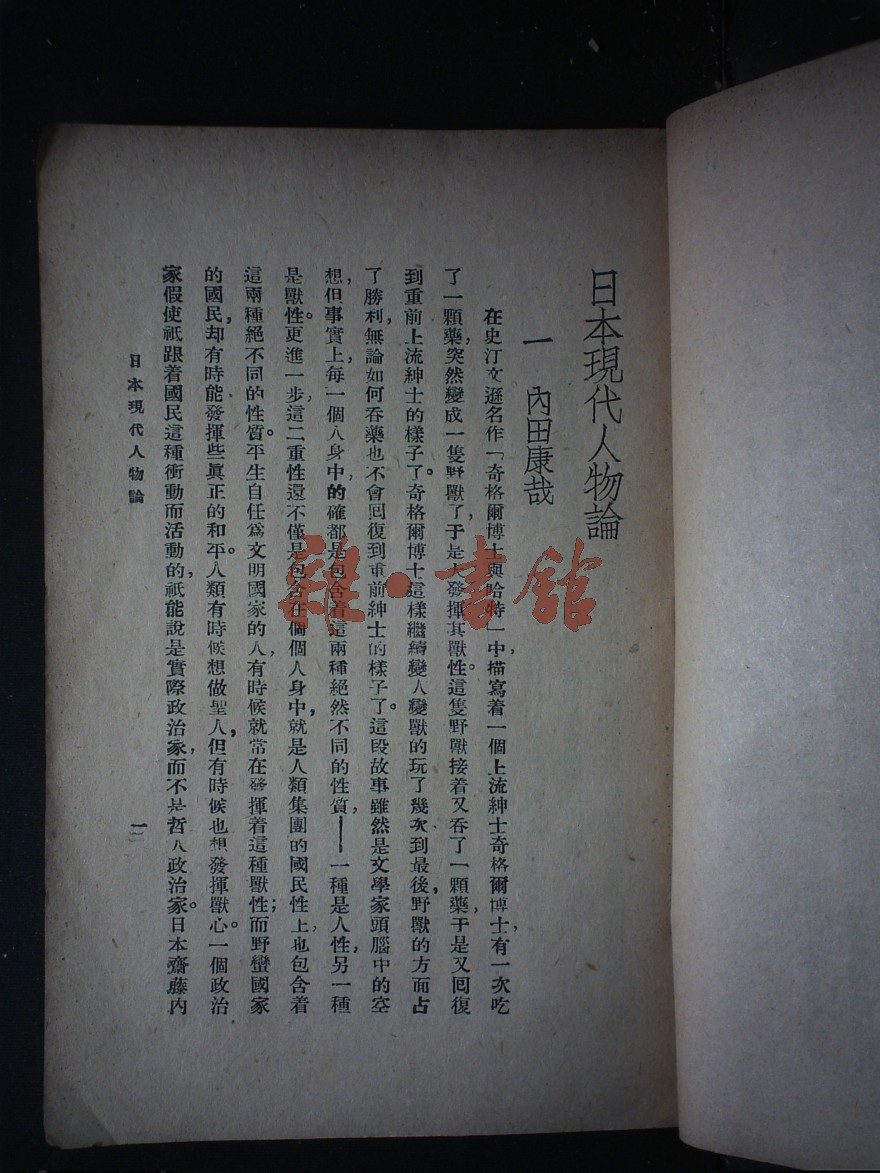 日本現代人物論
一　內田康哉
在史汀文遜名作「奇格爾博士與哈特」中，描寫着一個上流紳士奇格爾博士，有一次吃
了一顆藥，突然變成一隻野獸了，于是大發揮其獸性。這隻野獸接着又吞了一顆藥，于是又回復
到重前上流紳士的樣子了。奇格爾博士這樣繼續變人變獸的玩了幾次，到最後，野獸的方面占
了勝利，無論如何吞藥也不會回復到重前紳士的樣子了。這段故事雖然是文學家頭腦中的空
想，但事實上，每一個人身中，的確都是包含着這兩種絕然不同的性質——一種是人性，另一種
是獸性。更進一步，這二重性還不僅是包含在個個人身中，就是人類集團的國民性上，也包含着
這兩種絕不同的性質。平生自任爲文明國家的人，有時候就常在發揮着這種獸性；而野蠻國家
的國民，却有時能發揮些眞正的和平。人類有時候想做聖人，但有時候也想發揮獸心。一個政治
家假使祇跟着國民這種衝動而活動的，祇能說是實際政治家，而不是哲人政治家。日本齋藤內
日本現代人物論
一
雜·書館